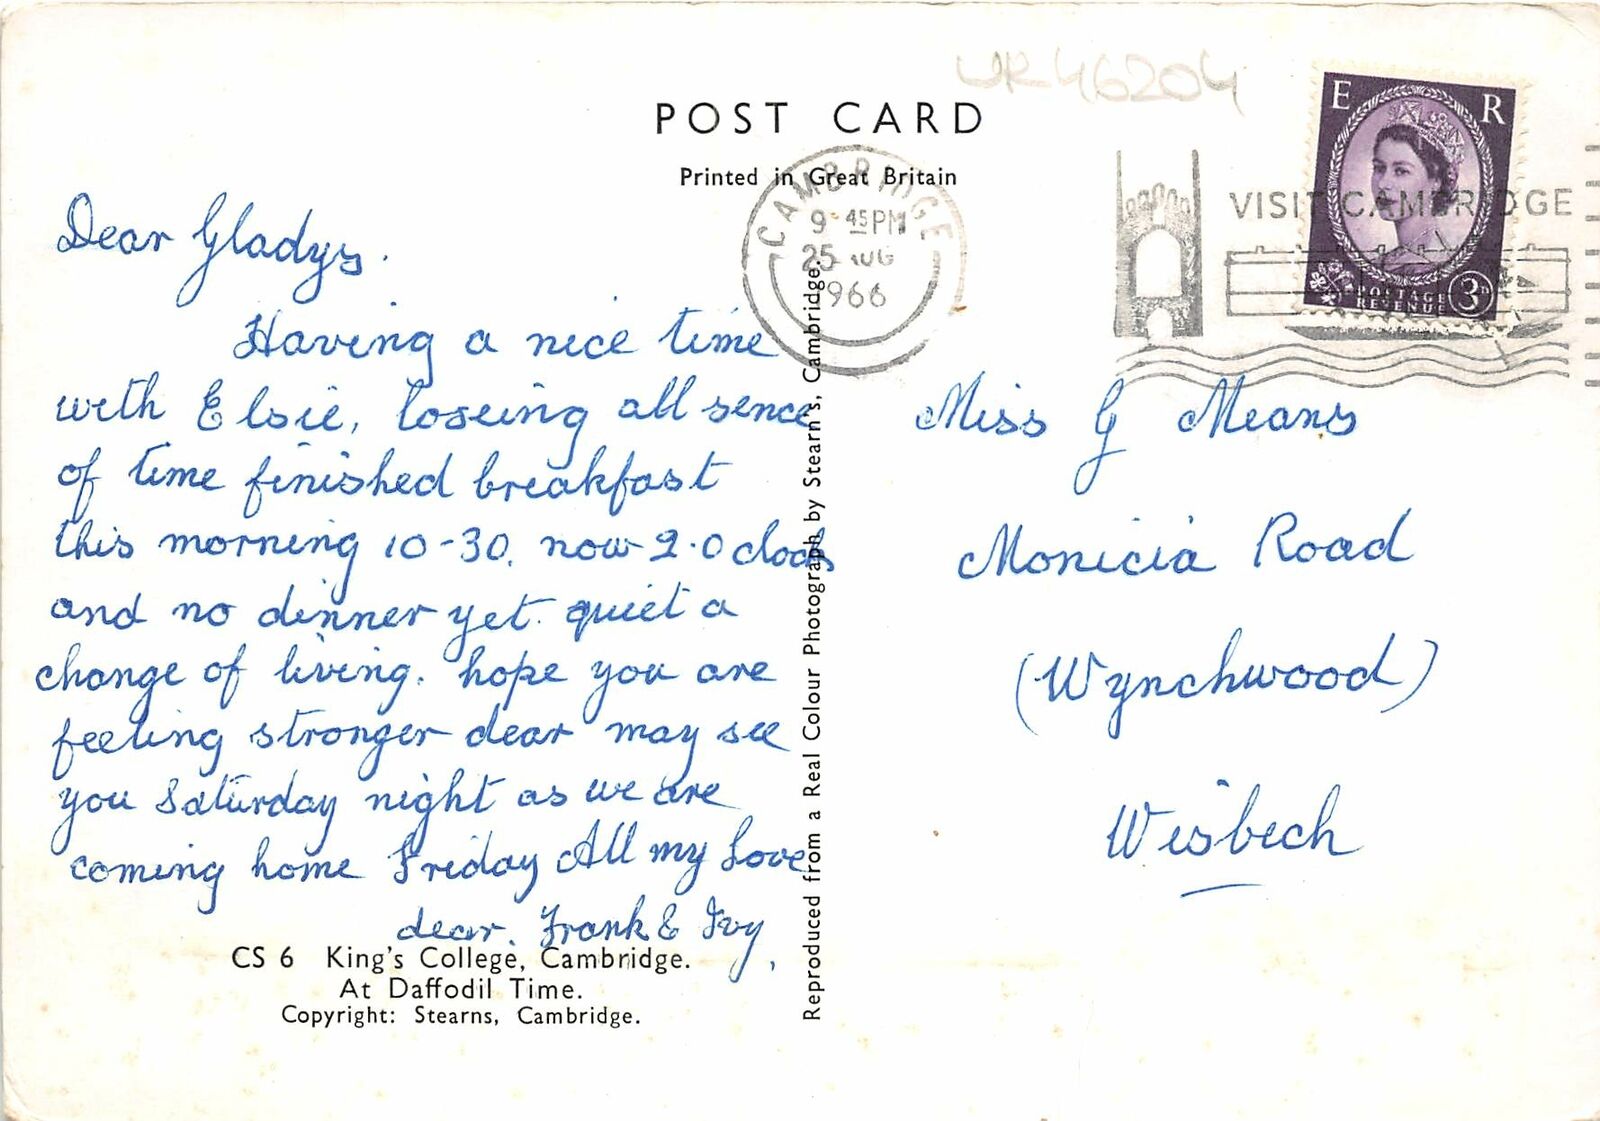 UR46204
POST CARD
Printed in Great Britain
CAMBRIDGE
9 45PM
25 AUG
1966
VISIT CAMBRIDGE
E R
POSTAGE
REVENUE
3D
Dear Gladys.
Having a nice time
with Elsie, loseing all sence
of time finished breakfast
this morning 10-30. now 2.0 clock
and no dinner yet. quiet a
change of living. hope you are
feeling stronger dear may see
you Saturday night as we are
coming home Friday All my Love
dear. Frank & Ivy.
CS 6 King's College, Cambridge.
At Daffodil Time.
Copyright: Stearns, Cambridge.
Reproduced from a Real Colour Photograph by Stearn's, Cambridge.
Miss G Means
Monicia Road
(Wynchwood)
Wisbech